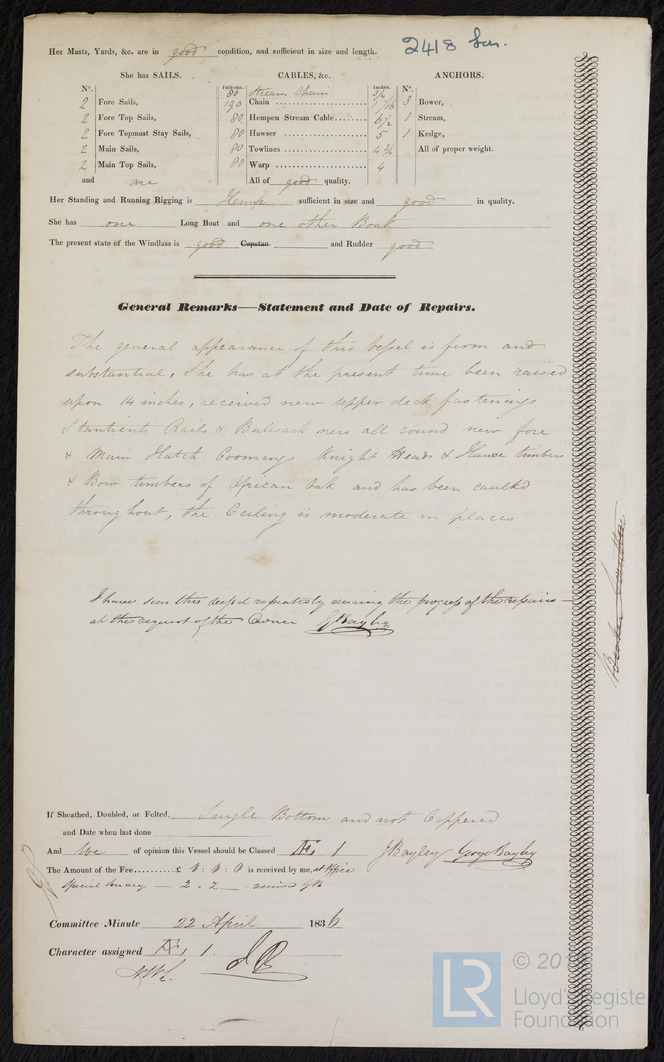 Her Masts, Yards, &c. are in good condition, and sufficient in size and length.
2418 Lon.
She has SAILS.
CABLES, &c.
ANCHORS.
N°.
Fathoms.
Inches.
N°.
80 Stream Chain
2 Fore Sails,
190 Chain 1 1/16
3 Bower,
2 Fore Top Sails,
80 Hempen Stream Cable 6 1/2
1 Stream,
2 Fore Topmast Stay Sails,
80 Hawser 5
1 Kedge,
2 Main Sails,
80 Towlines
All of proper weight.
2 Main Top Sails,
80 Warp 4
and are
All of good quality.
Her Standing and Running Rigging is Hemp sufficient in size and good in quality.
She has one Long Boat and one other Boat
The present state of the Windlass is good Capstan and Rudder good
General Remarks—Statement and Date of Repairs.
The general appearance of this vessel is firm and
substantial, She has at the present time been raised
upon 14 inches, received new upper deck fastenings
Stantients Rails & Bulwark new all round new fore
& Main Hatch Coomings Knight Heads & Hawse timbers
& Bow timbers of African Oak and has been caulkd
throughout, the Ceiling is moderate in places
I have seen this vessel repeatedly during the progress of the repairs—
at the request of the Owner G Bayley
If Sheathed, Doubled, or Felted. Single Bottom and not Coppered
and Date when last done
And We of opinion this Vessel should be Classed Æ 1 J Bayley George Bayley
The Amount of the Fee...........£ is received by me, at Office
Special Survey — 2 - 2 —
Committee Minute 22 April 1836
Character assigned Æ 1.
© 20
Lloyd's Registe
Foundation
LR